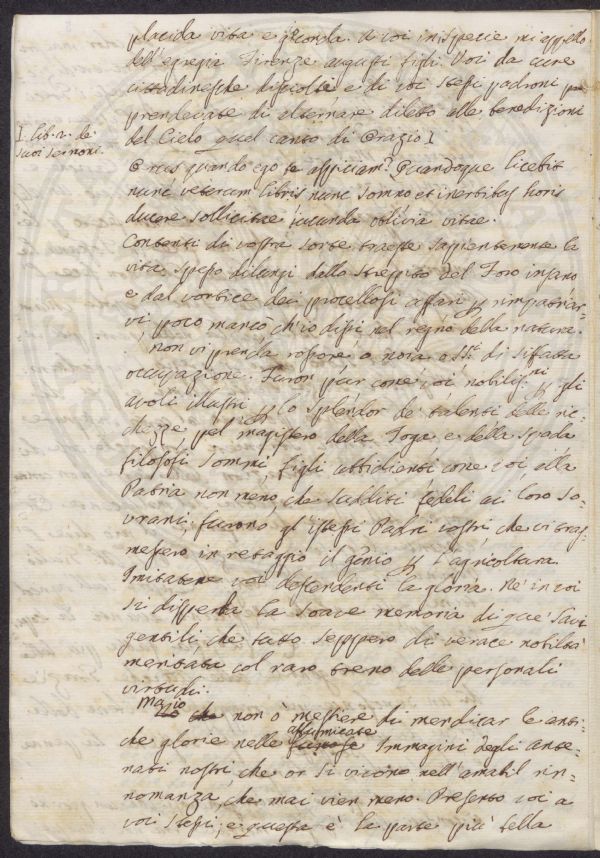 placida vita e gioconda. A voi in ispecie mi appello
dell'egregia Firenze augusti figli. Voi da cure
cittadinesche disciolti e di voi stessi padroni
prendevate di alternare diletto alle benedizioni
del Cielo quel canto di Orazio I
I. lib. 2. de
suoi sermoni.
O rus quando ego te aspiciam? Quandoque licebit
nunc veterum libris nunc somno et inertibus horis
ducere sollicitae jucunda oblivia vitae.
Contenti di vostra sorte traeste sapientemente la
vita spesso dilungi dallo strepito del Foro insano
e dal vortice dei procellosi affari p rimpatriar-
vi poco mancò ch'io dissi nel regno della natura.
non vi prenda rossore o noia o SSri di siffatta
occupazione. Furon pur come voi nobilissmi p gli
avoli illustri p lo splendor de' talenti delle ric-
chezze pel magistero della Toga e della spada
filosofi sommi, figli ubbidienti come voi alla
Patria non meno, che sudditi fedeli ai loro so-
vrani; furono gl'istessi Padri vostri, che vi tras-
messero in retaggio il genio p l'agricoltura.
Imitatene voi descendenti la gloria. Ne' in voi
si disperda la soave memoria di que' savi
gentili, che tutto seppero di verace nobiltà
meritata col raro treno delle personali
virtudi.
Ma io non ò mestiere di mendicar le anti-
che glorie nelle affumicate Immagini degli Ante-
nati nostri che or si vivono nell'amabil rin-
nomanza, che mai vien meno. Presento voi a
voi stessi; e questa è la parte più bella